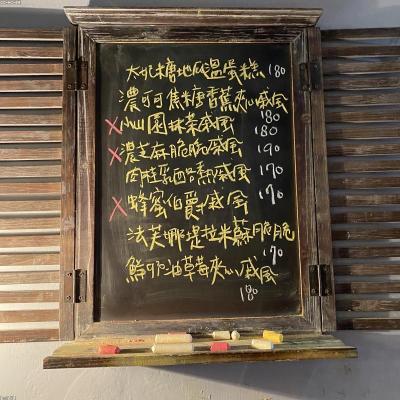 太妃糖地瓜溫蛋糕 180
濃可可焦糖香蕉夾心戚風 180
X小山園抹茶戚風 180
X濃芝麻脆脆戚風 190
肉桂乳酪熱戚風 170
X蜂蜜伯爵戚風 170
法芙娜提拉米蘇脆脆 170
鮮奶油草莓夾心戚風 180